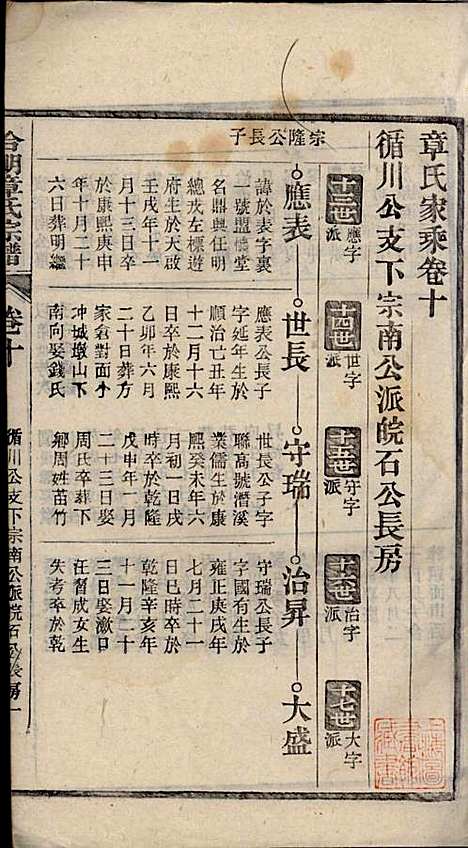 章氏家乘卷十
循川公支下宗南公派皖石公長房
十三世
應字派
十四世
世字派
十五世
守字派
十六世
治字派
十七世
大字派
宗隆公長子
應表
世長
守瑞
治昇
大盛
諱於表字裏
一號盟懷堂
名鼎興任明
總戎左標遊
府生於天啟
壬戌年十一
月十三日卒
於康熙庚申
年十月二十
六日葬明繼
應表公長子
字延年生於
順治己丑年
十二月十六
日卒於康熙
乙卯年六月
二十日葬方
家倉對面小
冲城墩山下
南向娶錢氏
世長公子字
聯高號潛溪
業儒生於康
熙癸未年六
月初一日戌
時卒於乾隆
戊申年一月
二十三日娶
周氏卒葬下
鄉周姓苗竹
守瑞公長子
字國有生於
雍正庚戌年
七月二十一
日巳時卒於
乾隆辛亥年
十一月二十
三日娶漵口
任晉成女生
失考卒於乾
章氏宗譜
卷十
循川公支下宗南公派皖石公長房一